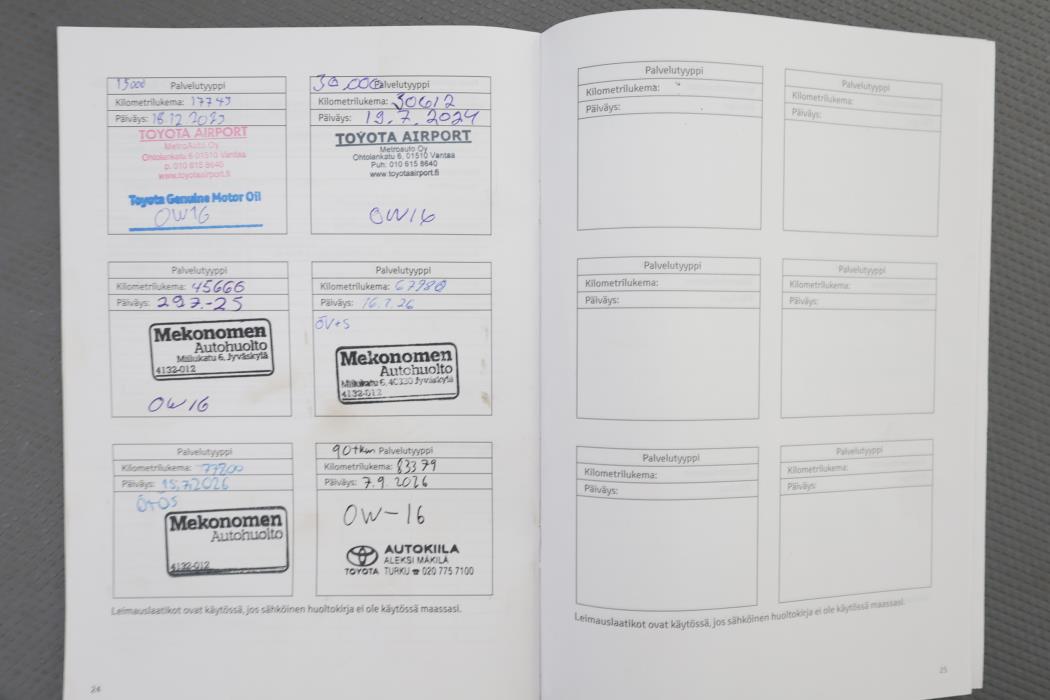 15000 Palvelutyyppi
Kilometrilukema: 17743
Päiväys: 18.12.2023
TOYOTA AIRPORT
MetroAuto Oy
Ohtolankatu 6 01510 Vantaa
p. 010 615 8640
www.toyotaairport.fi
Toyota Genuine Motor Oil
0W16
30.000 Palvelutyyppi
Kilometrilukema: 30612
Päiväys: 19.7.2024
TOYOTA AIRPORT
Metroauto Oy
Ohtolankatu 6, 01510 Vantaa
Puh. 010 615 8640
www.toyotaairport.fi
0W16
Palvelutyyppi
Kilometrilukema: 45666
Päiväys: 29.7.-25
Mekonomen
Autohuolto
Millukatu 6, Jyväskylä
4132-012
0W16
Palvelutyyppi
Kilometrilukema: 67980
Päiväys: 16.1.26
ÖV+S
Mekonomen
Autohuolto
Millukatu 6, 40320 Jyväskylä
4132-012
Palvelutyyppi
Kilometrilukema: 77200
Päiväys: 15.7.2026
Ö+ÖS
Mekonomen
Autohuolto
4132-012
90tkm Palvelutyyppi
Kilometrilukema: 83379
Päiväys: 7.9.2026
0W-16
AUTOKIILA
ALEKSI MÄKILÄ
TOYOTA TURKU ☎ 020 775 7100
Leimauslaatikot ovat käytössä, jos sähköinen huoltokirja ei ole käytössä maassasi.
24
Palvelutyyppi
Kilometrilukema:
Päiväys:
Palvelutyyppi
Kilometrilukema:
Päiväys:
Palvelutyyppi
Kilometrilukema:
Päiväys:
Palvelutyyppi
Kilometrilukema:
Päiväys:
Palvelutyyppi
Kilometrilukema:
Päiväys:
Palvelutyyppi
Kilometrilukema:
Päiväys:
Leimauslaatikot ovat käytössä, jos sähköinen huoltokirja ei ole käytössä maassasi.
25